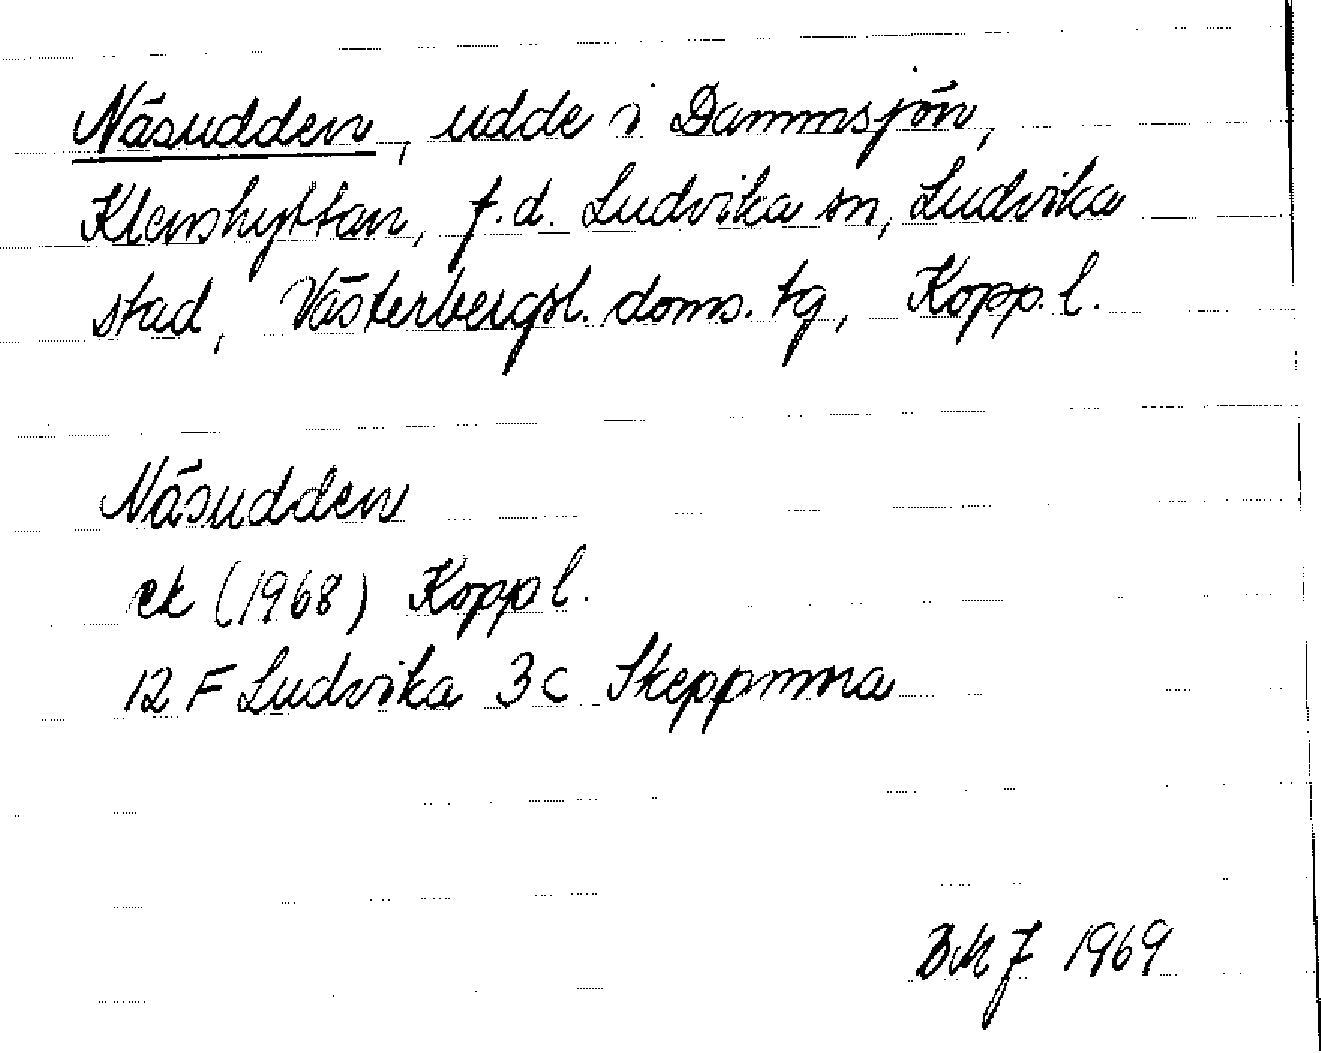 Näsudden, udde i Dammsjön,
Klenshyttan, f.d. Ludvika sn, Ludvika
stad, Västerbergsl. doms. tg, Kopp. l.
Näsudden
ek (1968) Kopp l.
12 F Ludvika 3c Skeppmora
BMJ 1969